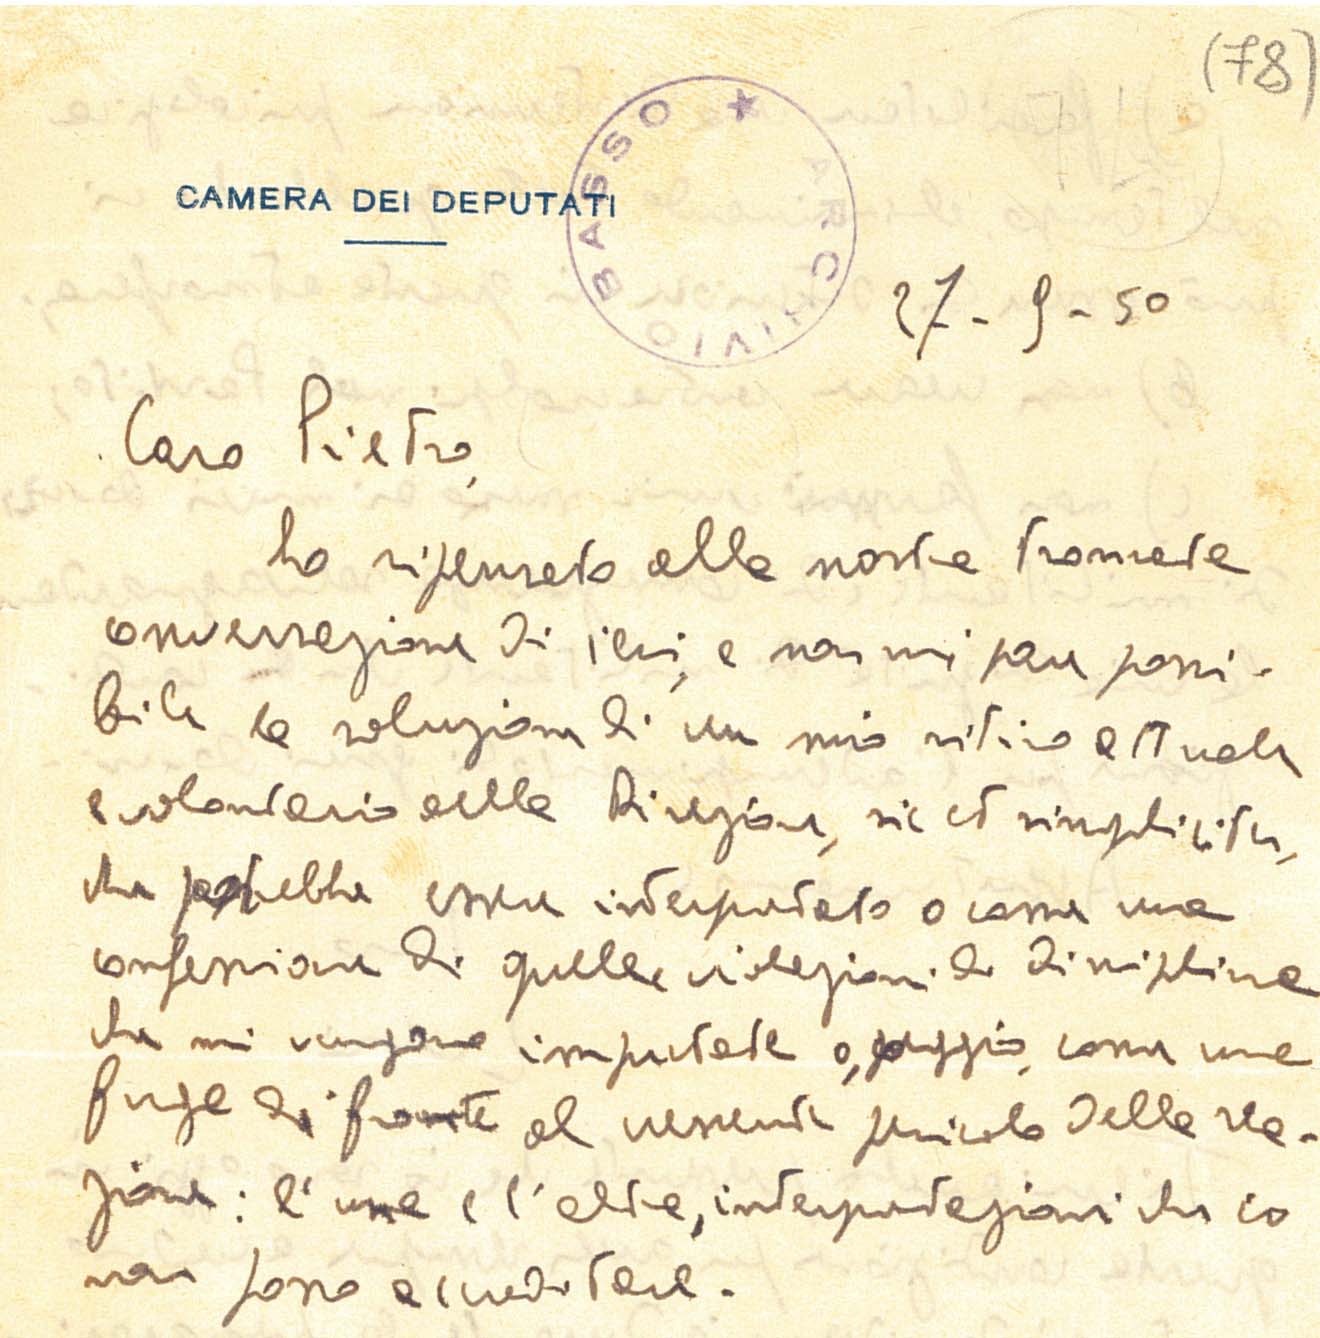 (78)
ARCHIVIO BASSO ★
CAMERA DEI DEPUTATI
27-9-50
Caro Pietro,
ho ripensato alla nostra troncata
conversazione di ieri, e non mi pare possi-
bile la soluzione di un mio ritiro attuale
e volontario dalla Direzione, sic et simpliciter,
che potrebbe essere interpretato o come una
confessione di quelle violazioni di disciplina
che mi vengono imputate o, peggio, come una
fuga di fronte al crescente pericolo della rea-
zione: l'una e l'altra, interpretazioni che io
non posso accreditare.